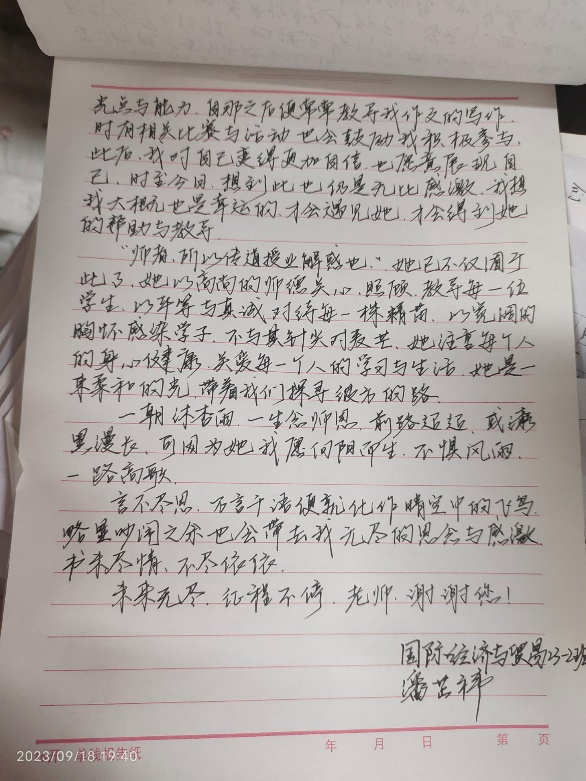 亮点与能力，自那之后便常常教导我作文的写作，
时有相关比赛与活动也会鼓励我积极参与，
此后，我对自己变得更加自信，也愿意展现自
己，时至今日，想到此也仍是无比感激，我想
我大概也是幸运的，才会遇见她，才会得到她
的帮助与教导。
“师者，所以传道授业解惑也，”她已不仅囿于
此了，她以高尚的师德关心、照顾、教导每一位
学生，以平等与真诚对待每一株精苗，以宽阔的
胸怀感染学子，不与其针尖对麦芒，她注重每个人
的身心健康，关爱每一个人的学习与生活，她是一
束柔和的光，带着我们探寻彼方的路。
一朝沐杏雨，一生念师恩，前路迢迢，或漆
黑漫长，可因为她我愿向阳而生，不惧风雨，
一路高歌。
言不尽思，万言千语便就化作晴空中的飞鸟，
略显吵闹之余也会带去我无尽的思念与感激，
书未尽情，不尽依依。
未来无尽，征程不停，老师，谢谢您！
国际经济与贸易23-2班
潘芸祎
年 月 日 第 页
2023/09/18 19:40